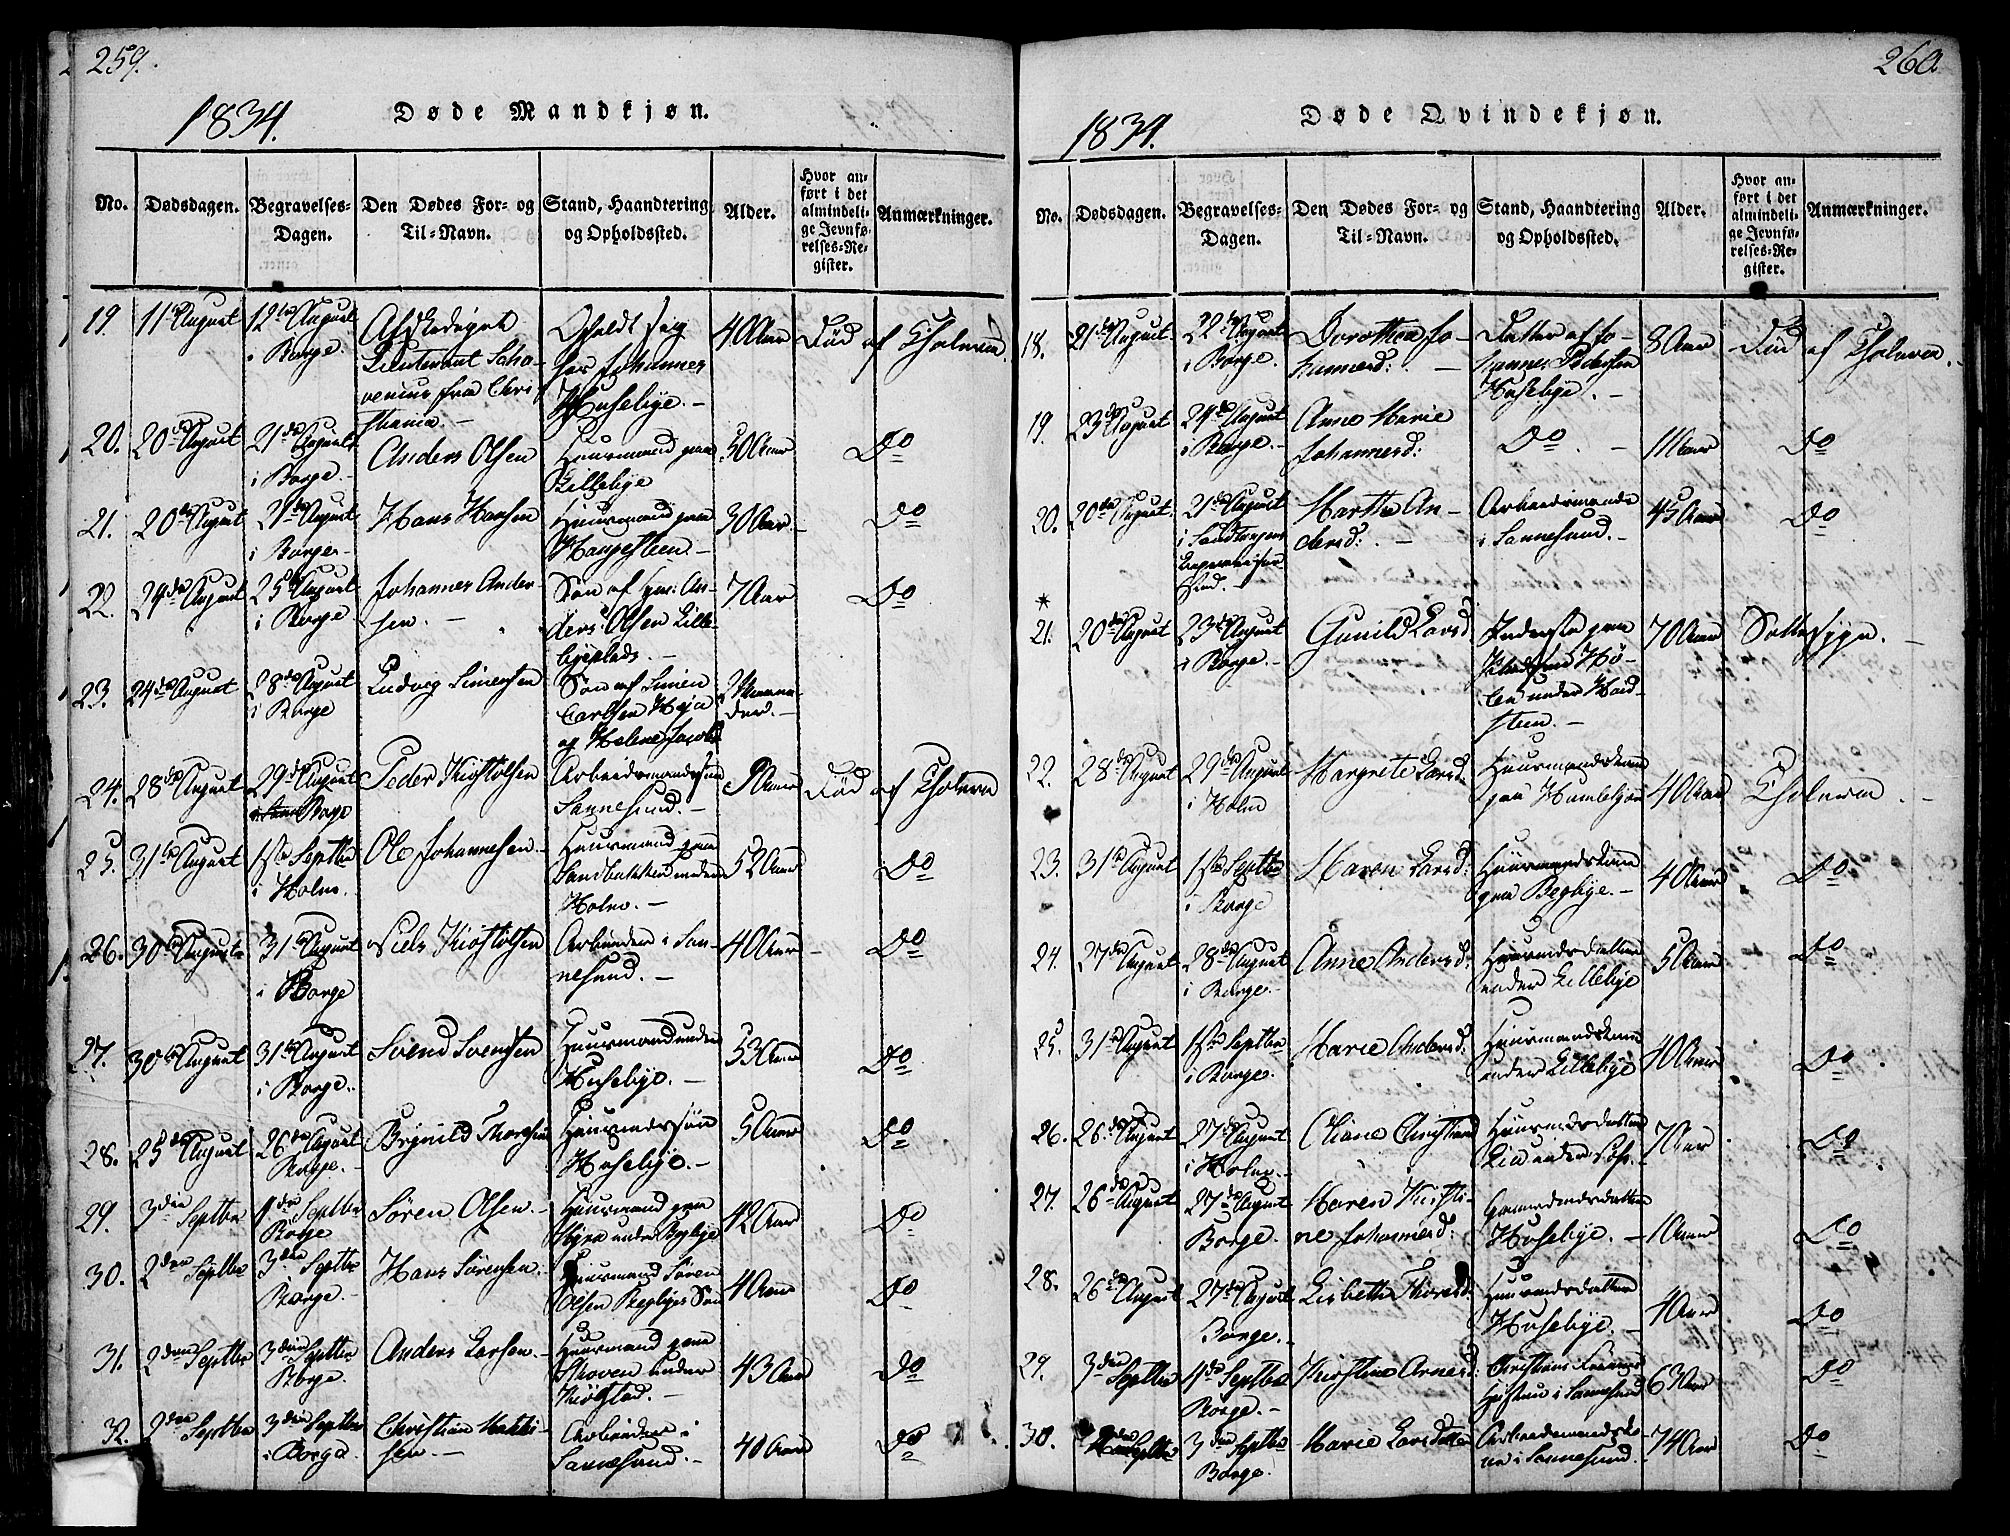 259.
1834.
Døde Mandkjøn.
No.
Dødsdagen.
Begravelses-
Dagen.
Den Dødes For- og
Til-Navn.
Stand, Haandtering
og Opholdssted.
Alder.
Hvor an-
ført i det
almindeli-
ge Jevnfø-
relses-Re-
gister.
Anmærkninger.
19
11te August
12te August
i Borge.
Afskediget
Lieutenant
fra Chri-
stiania.
Opholdt sig
hos Johannes
Huseby.
40 Aar
Død af Cholera
20.
20de August
21de August
i Borge.
Anders Olsen
Huusmand paa
Lillebye
30 Aar
Do
21.
20de August
21de August
i Borge
Hans Hansen
Huusmand paa
Haugesteen.
30 Aar
Do
22.
24de August
25de August
i Borge
Johannes Ander-
sen.
Søn af Hmd. An-
ders Olsen Lille-
byeplads.
7 Aar
Do
23.
24de August
28de August
i Borge
Ludvig Simensen
Søn af Simen
Carlsen
og Helene Jacobsd
2 Maane-
der.
24.
28de August
29de August
Borge
Peder Kiøstolsen
Arbeidsmandssøn
Sannesund.
9 Aar
Død af Cholera
25.
31te August
1ste Septbr
i Holm.
Ole Johannesen.
Huusmand paa
Sandbakken under
Holm.
52 Aar
Do
26.
30te August
31te August
i Borge
Niels Kiøstolsen
Arbeider i San-
nesund.
40 Aar
Do
27.
30te August
31te August
i Borge.
Svend Svendsen
Huusmand under
Husebye.
53 Aar
Do
28.
25de August
26de August
Borge.
Brynild Thoresen
Huusmandssøn
Husebye.
5 Aar
Do
29.
3die Septbr
4de Septbr
Borge
Søren Olsen.
Huusmand paa
under Begbye
42 Aar
Do
30.
2den Septbr
3die Septbr
Borge.
Hans Sørensen.
Huusmand Søren
Olsen Begbyes Søn
4 Aar
Do
31.
2den Septbr
3die Septbr
Borge.
Anders Larsen.
Huusmand paa
Skoven under
Kiølstad.
43 Aar
Do
32.
2den Septbr
3die Septbr
i Borge.
Christian Mathi-
sen.
Arbeider i
Sannesund.
40 Aar
Do
260
1834.
Døde Qvindekjøn.
No.
Dødsdagen.
Begravelses-
Dagen.
Den Dødes For- og
Til-Navn.
Stand, Haandtering
og Opholdssted.
Alder.
Hvor an-
ført i det
almindeli-
ge Jevnfø-
relses-Re-
gister.
Anmærkninger.
18.
21de August
22de August
i Borge.
Dorothea Jo-
hannesd:
Datter af Jo-
hannes Pedersen
Husebye.
8 Aar
Død af Cholera.
19.
23de August
24de August
i Borge.
Anne Marie
Johannesd:
Do
11 Aar
Do
20.
20de August
21de August
Marthe An-
dersd:
Arbeidsmands
i Sannesund.
45 Aar
Do
*
21.
20de August
23de August
i Borge.
Gunild Larsd.
Inderste paa
under Haid-
steen.
70 Aar
Sottesyge.
22.
28de August
29de August
i Holm
Margrete Larsd.
Huusmandskone
paa Humlekjær
40 Aar
Cholera.
23.
31te August
1ste Septbr
i Borge
Maren Larsd:
Huusmandskone
paa Begbye.
40 Aar
Do
24.
27de August
28de August
i Borge.
Anne Andersd:
Huusmdsdatter
under Lillebye
5 Aar
Do
25.
31te August
1ste Septbr
i Borge.
Marie Andersd:
Huusmandskone
under Lillebye
40 Aar
Do
26.
26de August
27de August
i Holm.
Oliane Christiansd
Huusmdsdatter
Lie under
7 Aar
Do
27.
26de August
27de August
Borge.
Maren Kirsti-
ne Johannesd:
Gaardmdsdatter
Husebye.
1 Aar
Do
28.
26de August
27de August
Borge.
Lisbeth Thoresd.
Huusmdsdatter
Husebye.
4 Aar
Do
29.
3die Septbr
4de Septbr
Borge.
Kirstine Arnesd:
i Sannesund
63 Aar
Do
30.
Septbr
3die Septbr
Borge.
Marie Larsdatter
Arbeidsmandsko-
ne i Sannesund.
74 Aar
Do